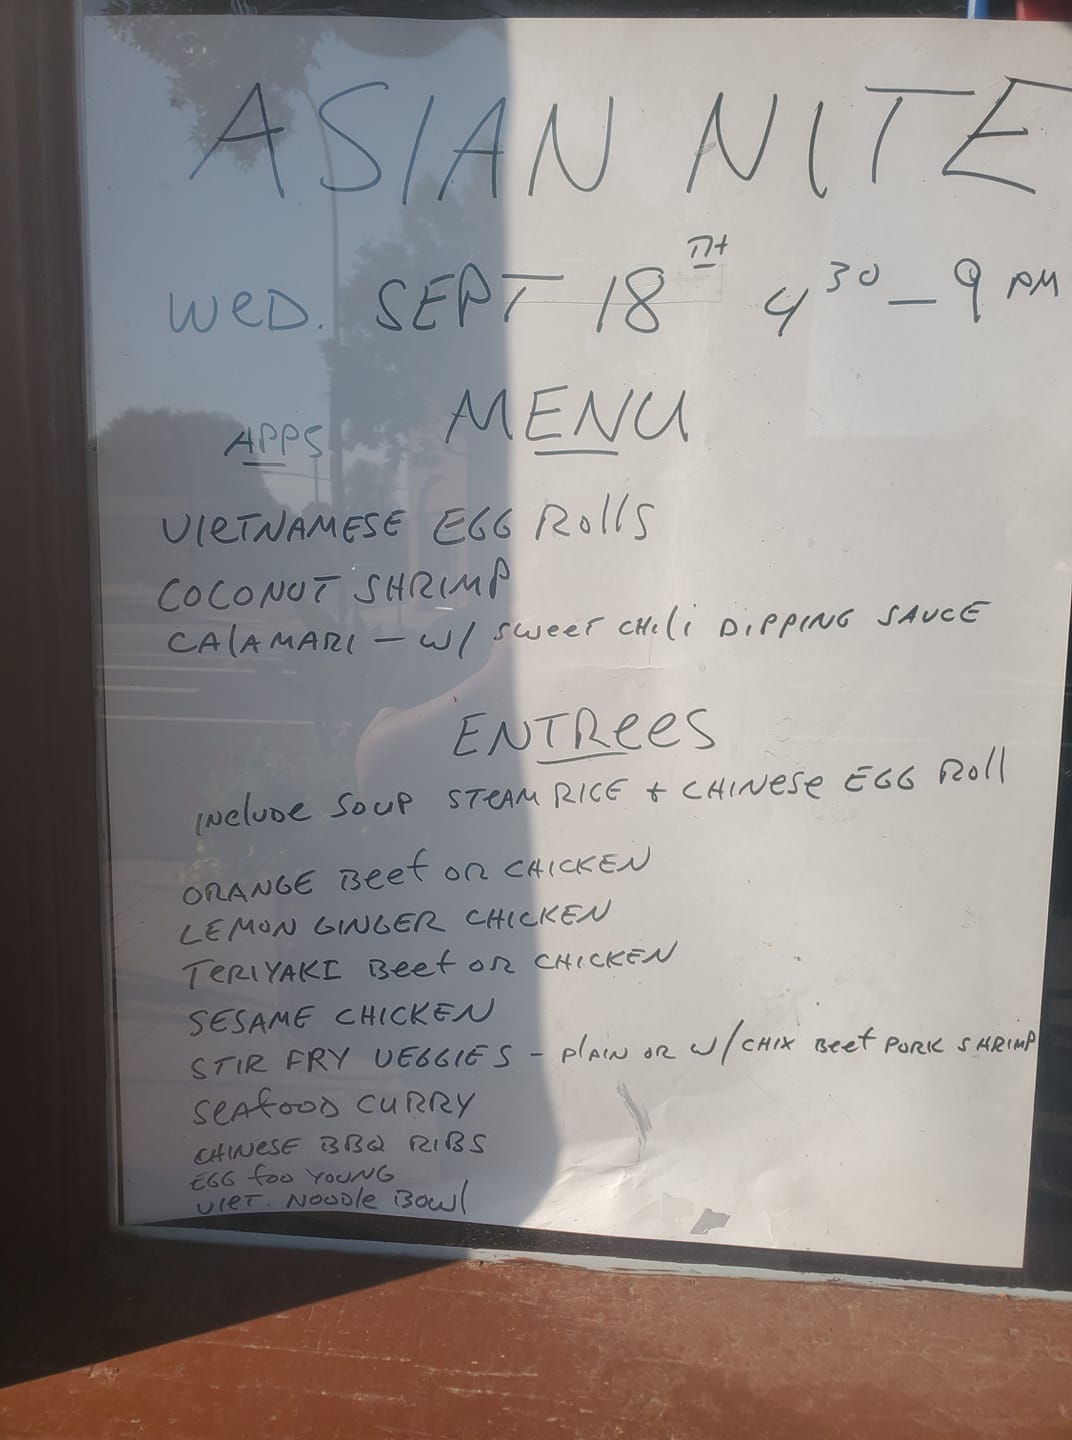 ASIAN NITE
WED. SEPT 18TH 430 - 9 PM
MENU
APPS
VIETNAMESE EGG Rolls
COCONUT SHRIMP
CALAMARI - W/ SWEET CHILI DIPPING SAUCE
ENTREES
INCLUDE SOUP STEAM RICE + CHINESE EGG Roll
ORANGE BEEF OR CHICKEN
LEMON GINGER CHICKEN
TERIYAKI BEEF OR CHICKEN
SESAME CHICKEN
STIR FRY VEGGIES - PLAIN OR W/CHIX BEEF PORK SHRIMP
SEAFOOD CURRY
CHINESE BBQ RIBS
EGG FOO YOUNG
VIET. NOODLE BOWL